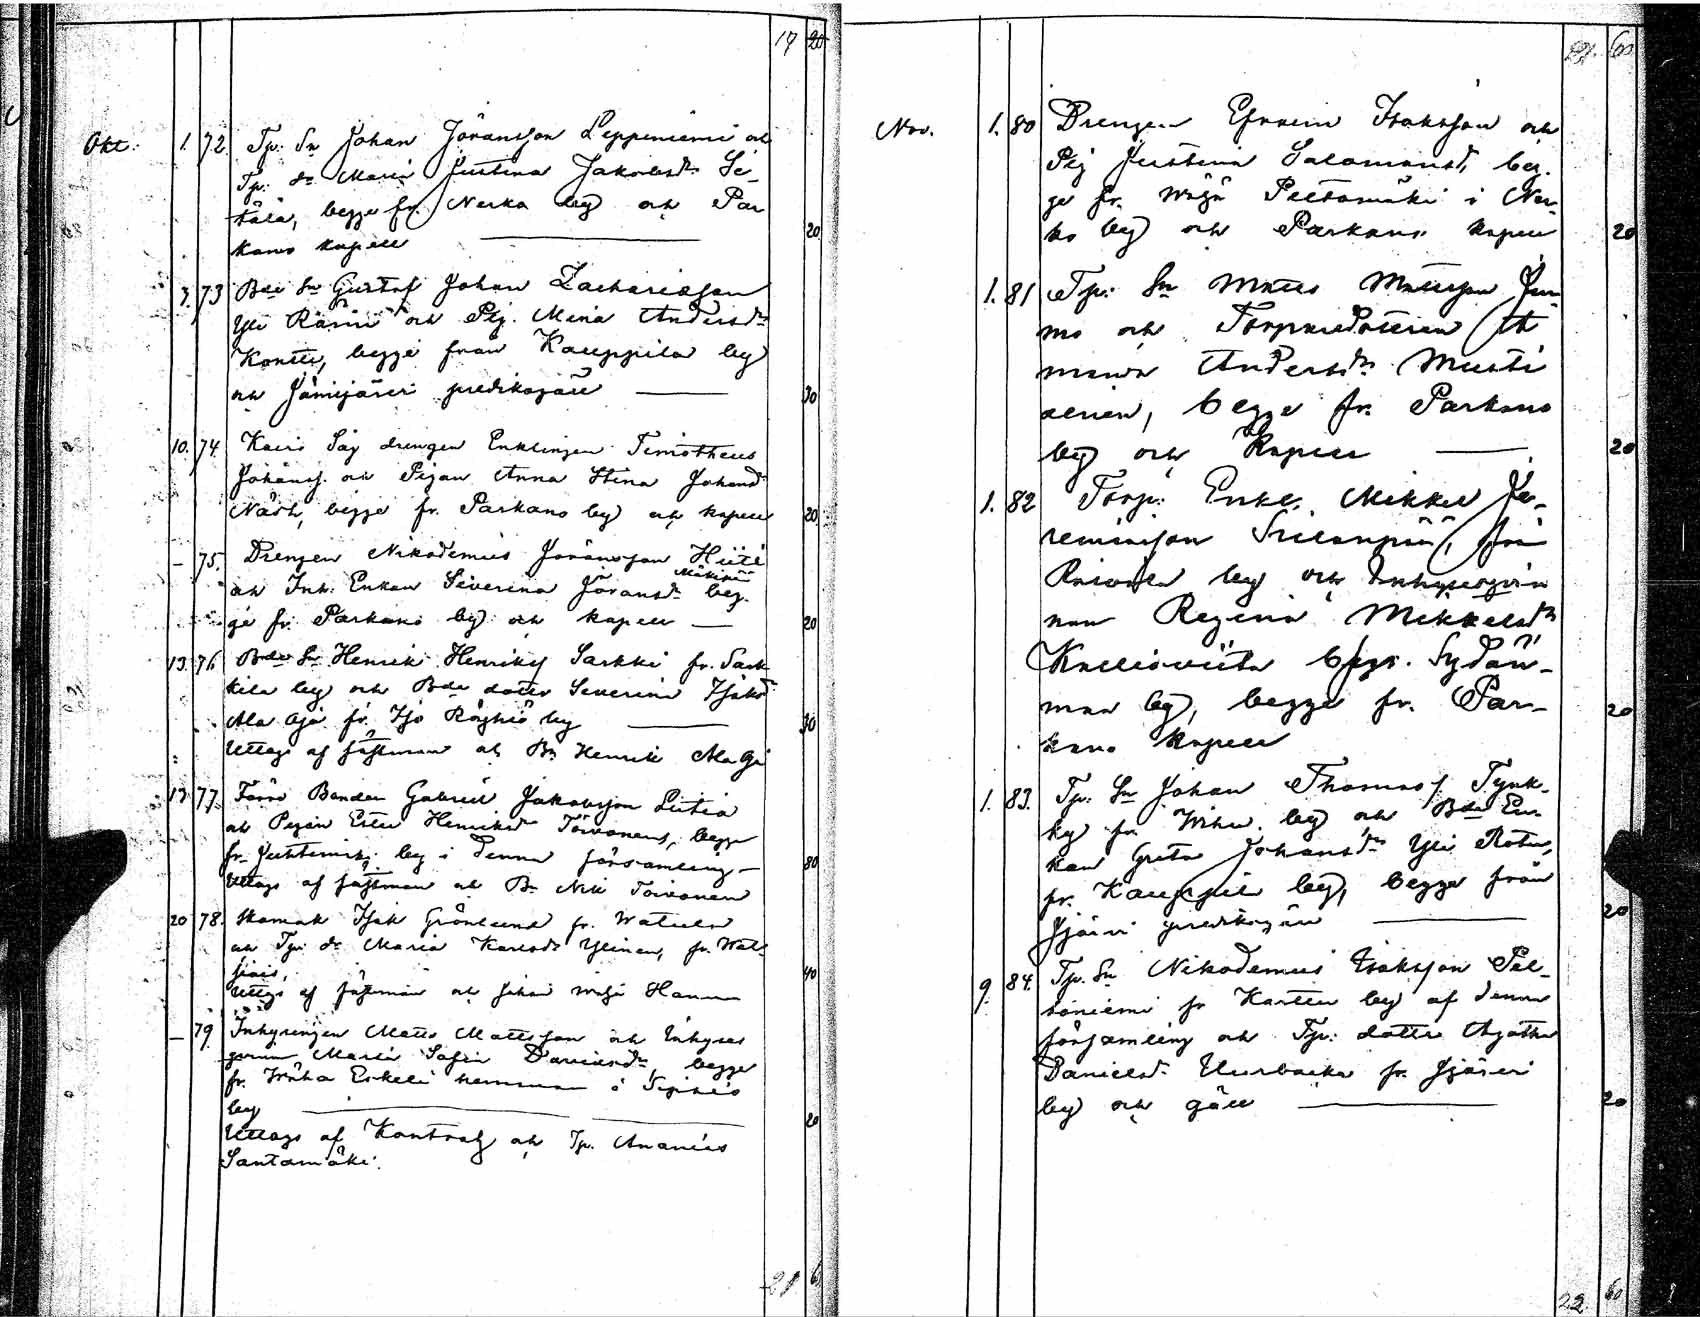 17 20
Okt. 1. 72. Tp. Sn Johan Jöransson Leppeniemi och
Tp. dr Maria Justina Jakobsdr Se-
tälä, begge fr. Nerko by och Par
kano kapell 20
3. 73 Bde Sn Gustaf Johan Zachariasson
Yli Räsin och Pig. Mina Andersdr
Kontti, begge från Kauppila by
och Jämijärvi predikogäll 30
10. 74. Kairo Såg drengen Enklingen Timotheus
Johanss. och Pigan Anna Stina Johansd
Näsi, begge fr. Parkano by och kapell 20
– 75. Drengen Nikodemus Jöransson Hiite
Mäkipää
och Inh. Enkan Severina Jöransdr beg-
ge fr. Parkano by och kapell 20
13. 76 Bde Sn Henrik Henrikss Sarkki fr. Sark
kila by och Bde dotter Severina Isaksd
Ala Äjö fr. Iso Röyhiö by 30
Uttags af fästman och Bn Henrik Ala
13. 77. Förre Bonden Gabriel Jakobsson Liitia
och Pigan Ester Henriksd Toivonen, begge
fr. by i denna församling – 80
Uttags af fästman och Bn Niki Toivonen
20 78. Skomak Isak Grönlund fr. Watula
och Tp. dr Maria Karlsdr Ylinen, fr. Wal-
40
Uttags af fästman och Johan Hannu
– 79 Inhysingen Matts Mattsson och Inhyses
qvinn Maria Safia Danielsdr, begge
fr. Wäha Eskeli hemman o
by 20
Uttags af Kontrah och Tp. Ananias
Santamäki.
21 60
21. 60
Nov. 1. 80 Drengen Efraim Isaksson och
Pig Justina Salomonsd, beg-
ge fr. Peltomäki i Ner-
ko by och Parkano kapell 20
1. 81 Tp. Sn Matts Mattsson Jur-
mo och Torparedottren A
manda Andersdr Musti
aenen, begge fr. Parkano
by och Kapell 20
1. 82 Torp. Enkl. Mikkel Je-
remiasson från
by och Inhysesqvin
nan Regina Mikkelsdr
Kallioviita Sydän-
maa by, begge fr. Par- 20
kano kapell
1. 83. Tp. Sn Johan Thomass Tynk-
ky fr. by och Bde En-
kan Greta Johansdr Yli Rotu,
fr. Kauppila by, begge från
Jjärvi predikogäll 20
9. 84. Tp. Sn Nikodemus Isaksson Pel-
toniemi fr Karttu by af denna
församling och Tp. dotter Agatha
Danielsdr fr. Jjärvi
by och gäll 20
22. 60